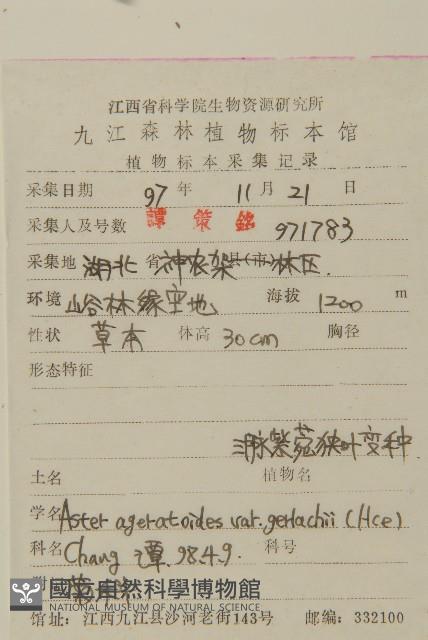 江西省科学院生物资源研究所
九江森林植物标本馆
植物标本采集记录
采集日期 97 年 11 月 21 日
采集人及号数 譚策銘 971783
采集地 湖北 省 神农架 县(市) 林区.
环境 山谷林缘空地 海拔 1200 m
性状 草本 体高 30cm 胸径
形态特征
三脉紫菀狭叶变种
土名 植物名
学名 Aster ageratoides var. gerlachii (Hce)
科名 Chang 譚. 98.4.9. 科号
國立自然科學博物館
NATIONAL MUSEUM OF NATURAL SCIENCE
馆址：江西九江县沙河老街143号 邮编：332100